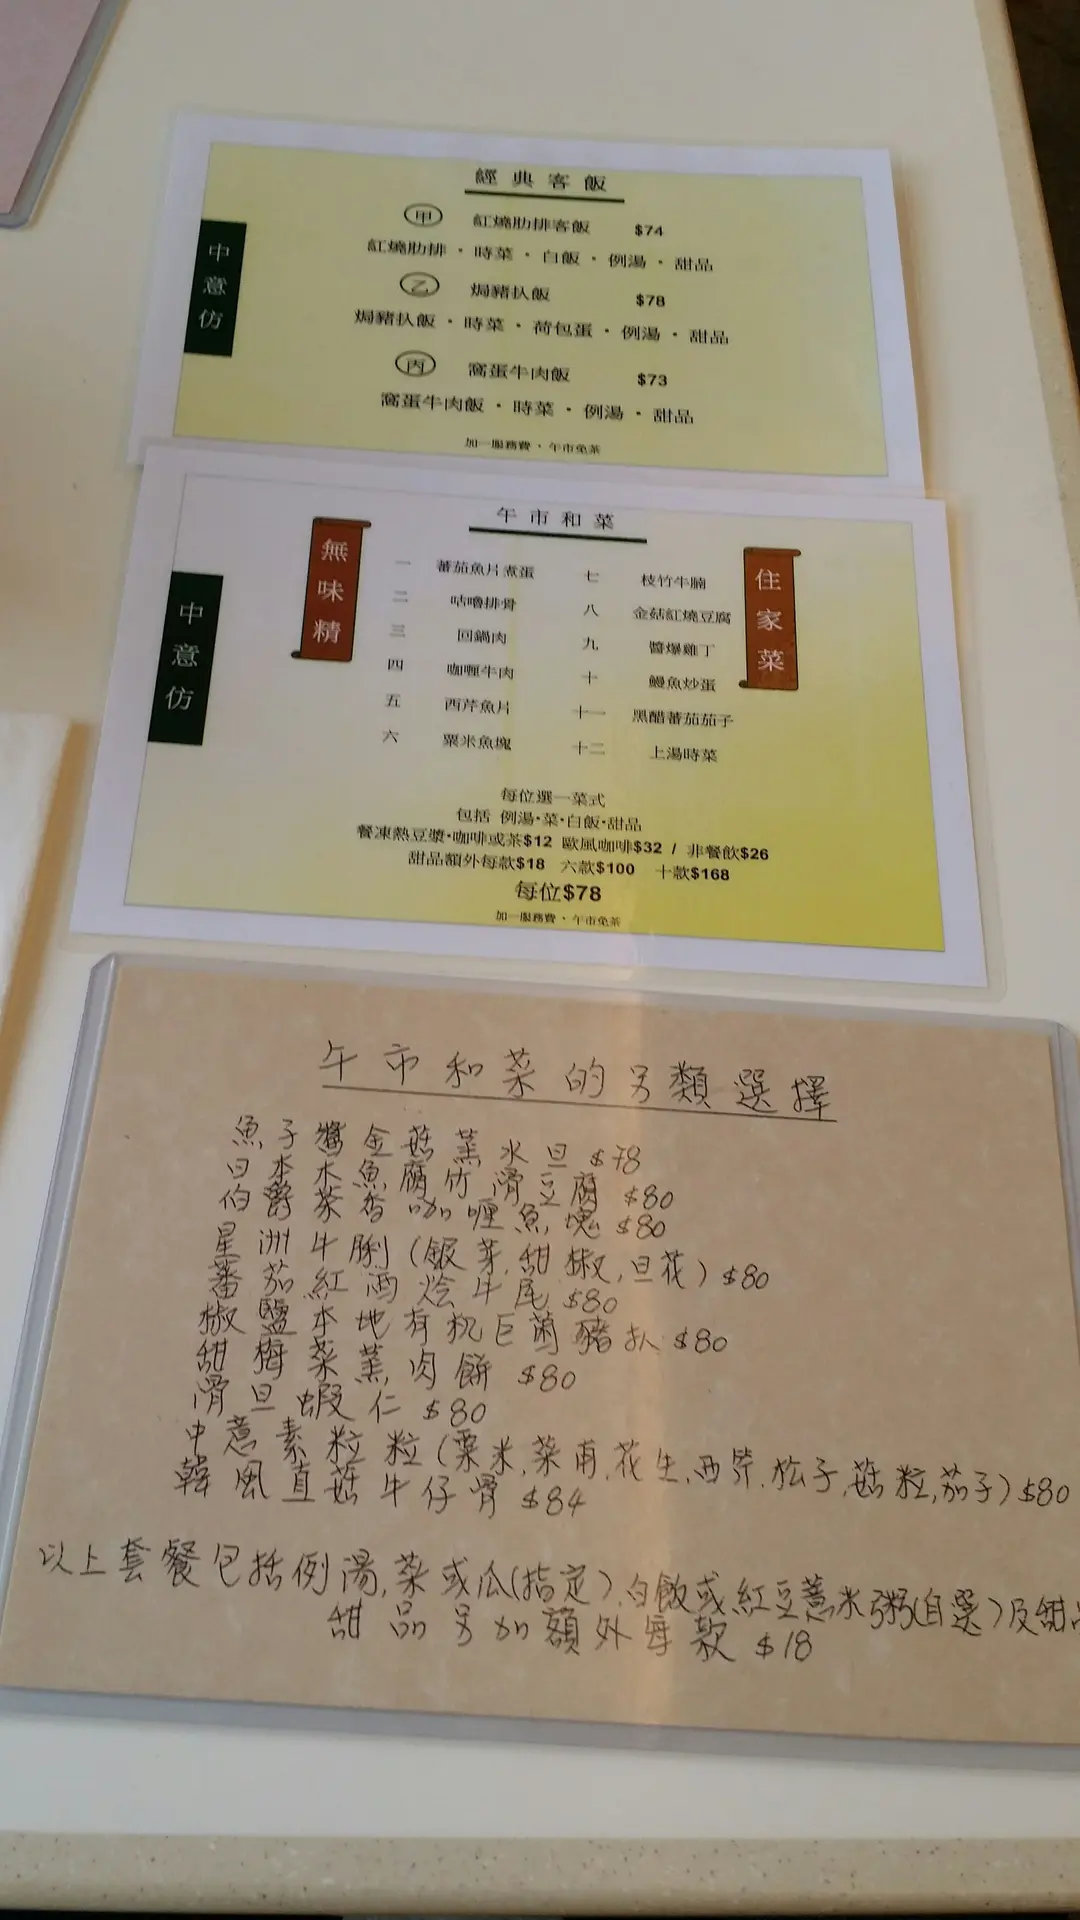 經典客飯
甲 紅燒肋排客飯 $74
紅燒肋排・時菜・白飯・例湯・甜品
乙 焗豬扒飯 $78
焗豬扒飯・時菜・荷包蛋・例湯・甜品
丙 窩蛋牛肉飯 $73
窩蛋牛肉飯・時菜・例湯・甜品
加一服務費・午市免茶
中意仿
午市和菜
無味精
住家菜
中意仿
一 蕃茄魚片煮蛋
二 咕嚕排骨
三 回鍋肉
四 咖喱牛肉
五 西芹魚片
六 粟米魚塊
七 枝竹牛腩
八 金菇紅燒豆腐
九 醬爆雞丁
十 鰻魚炒蛋
十一 黑醋蕃茄茄子
十二 上湯時菜
每位選一菜式
包括 例湯・菜・白飯・甜品
餐凍熱豆漿・咖啡或茶$12 歐風咖啡$32 / 非餐飲$26
甜品額外每款$18 六款$100 十款$168
每位$78
加一服務費・午市免茶
午市和菜的另類選擇
魚子醬金菇蒸水旦 $78
日本木魚腐竹滑豆腐 $80
伯爵茶香咖喱魚塊 $80
星洲牛脷(銀芽,甜椒,旦花) $80
蕃茄紅酒燴牛尾 $80
椒鹽本地有机巨菌豬扒 $80
甜梅菜蒸肉餅 $80
滑旦蝦仁 $80
中意素粒粒(粟米,菜甫,花生,西芹,松子,菇粒,茄子) $80
韓風直菇牛仔骨 $84
以上套餐包括例湯,菜或瓜(指定),白飯或紅豆薏米粥(自選)及甜品
甜品另加額外每款 $18